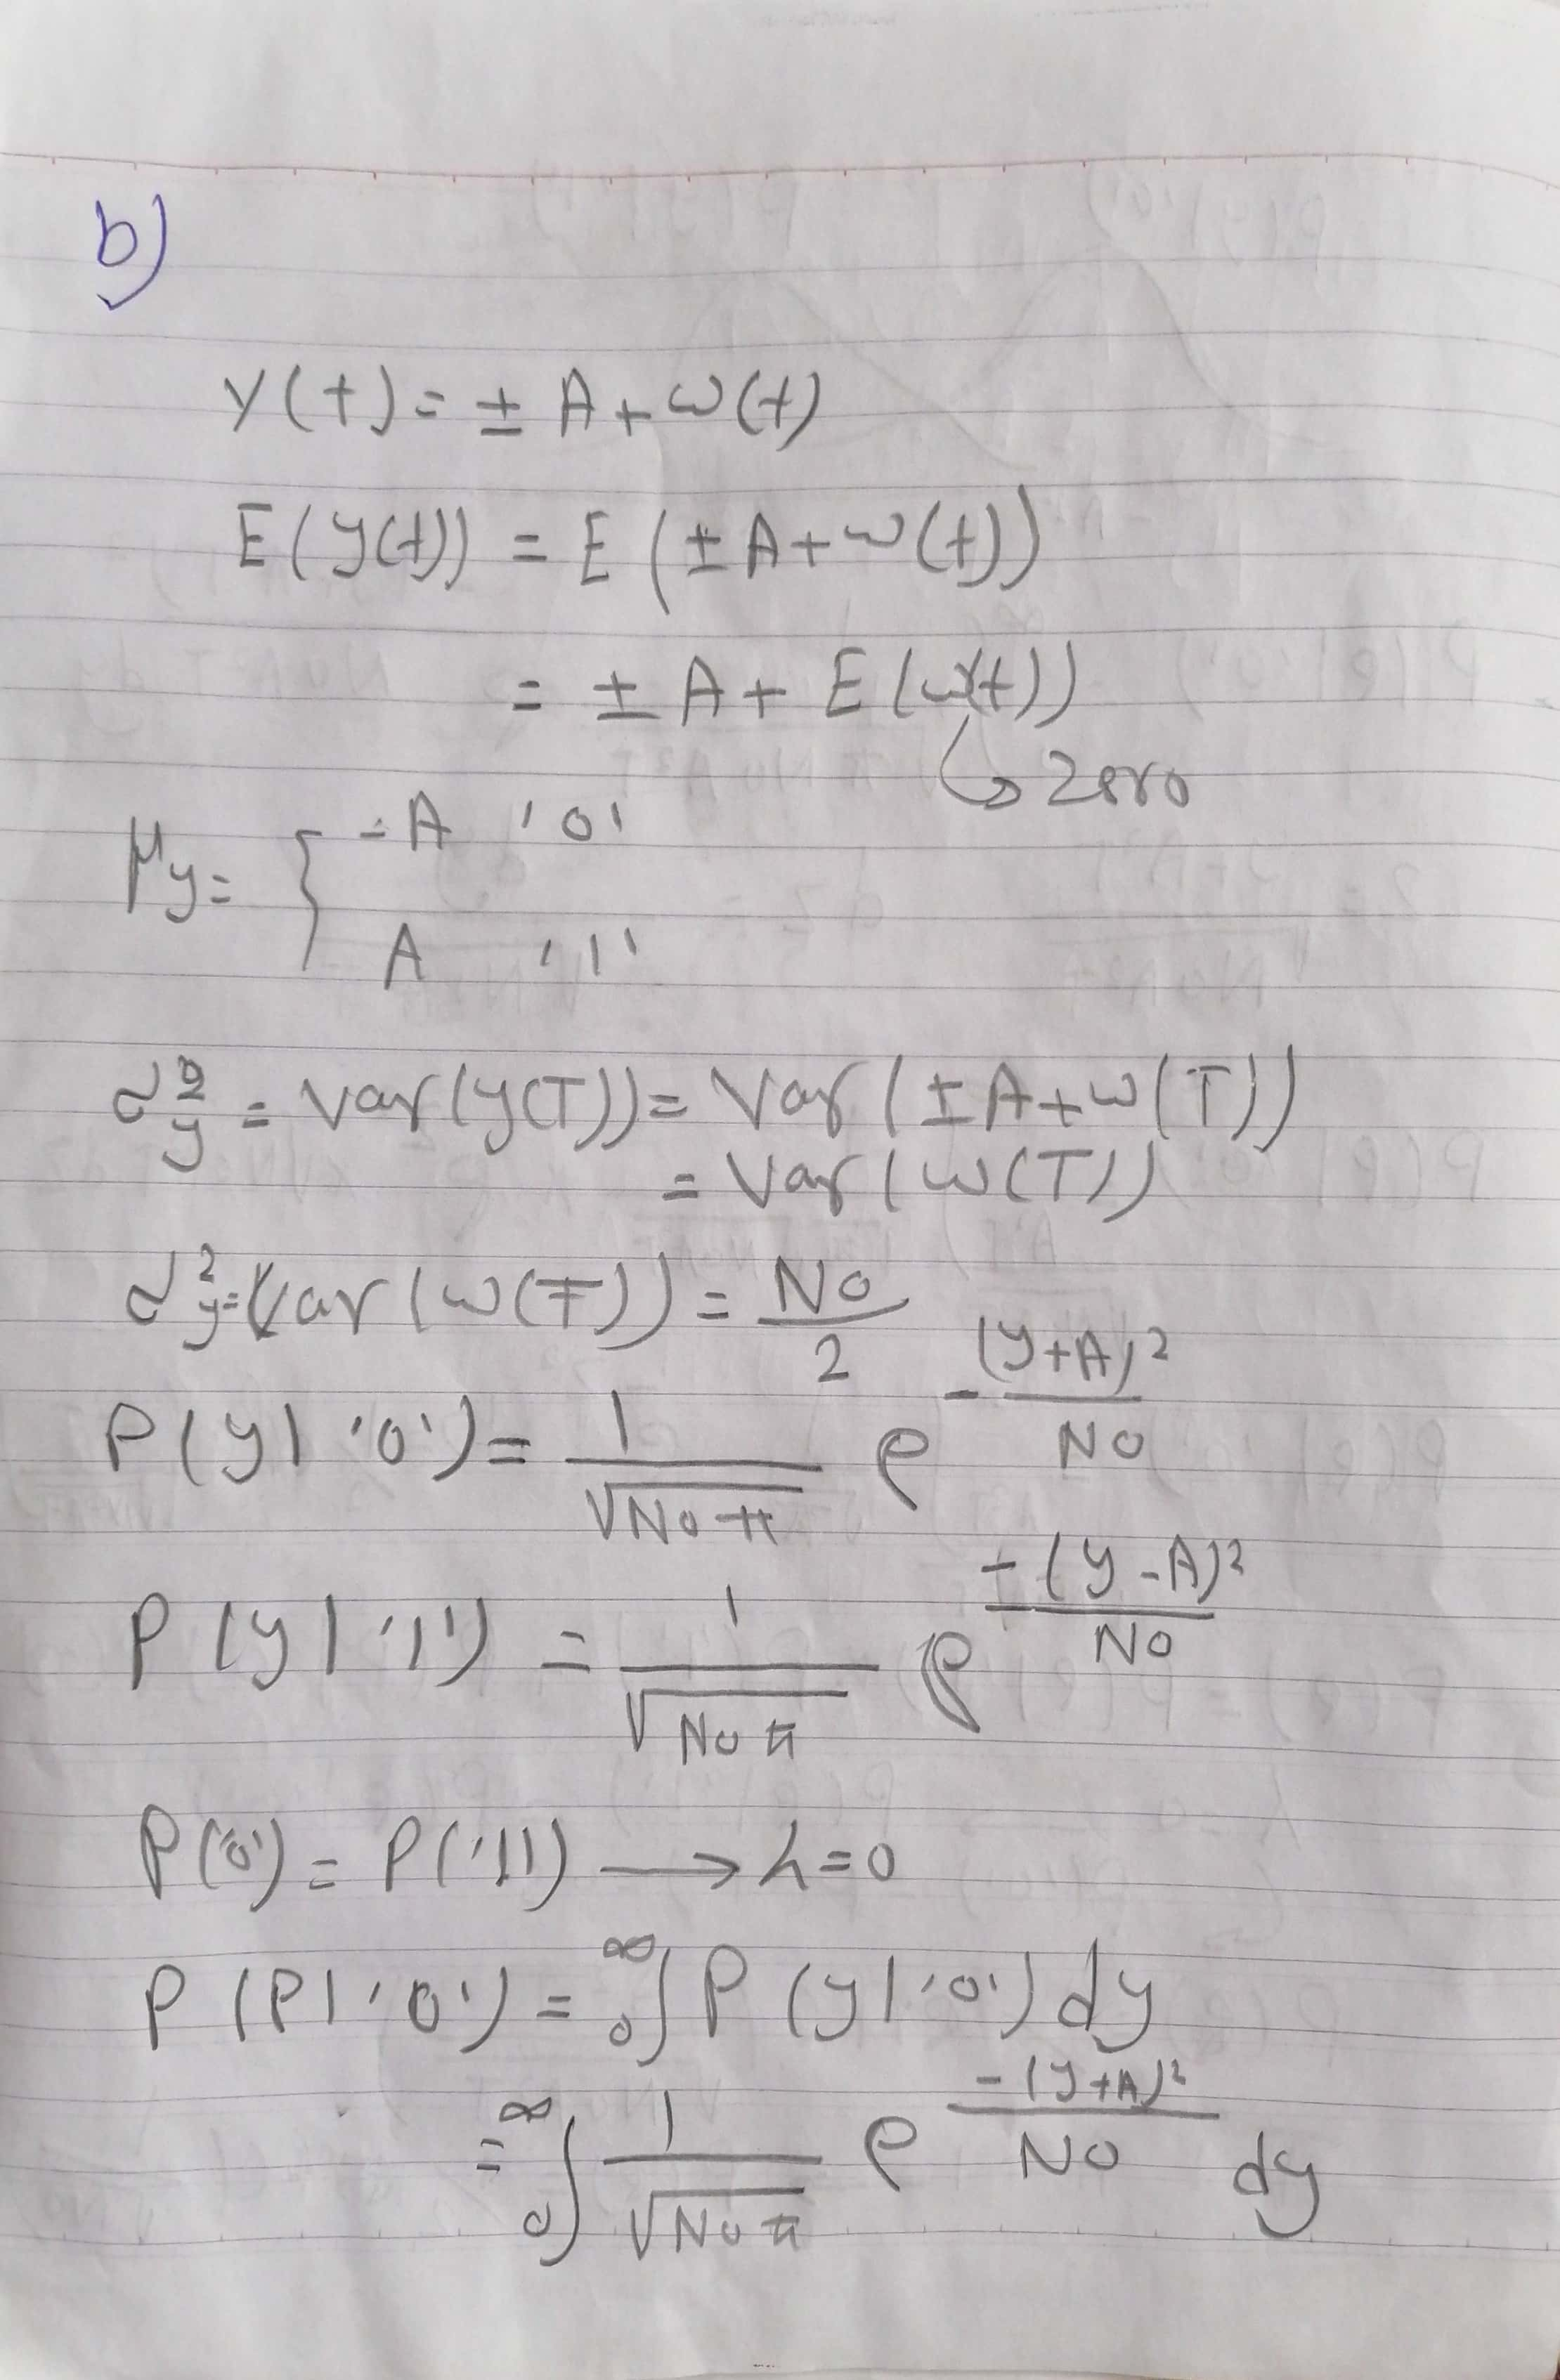 b)
y(t) = ± A + w(t)
E(y(t)) = E(± A + w(t))
= ± A + E(w(t))
↳ zero
μy = { -A '0'
A '1'
σ²y = Var(y(T)) = Var(± A + w(T))
= Var(w(T))
σ²y = Var(w(T)) = No/2
P(y|'0') = 1/√(Noπ) e^(-(y+A)²/No)
P(y|'1') = 1/√(Noπ) e^(-(y-A)²/No)
P('0') = P('1') → λ=0
P(e|'0') = ₀∫^∞ P(y|'0') dy
= ₀∫^∞ 1/√(Noπ) e^(-(y+A)²/No) dy